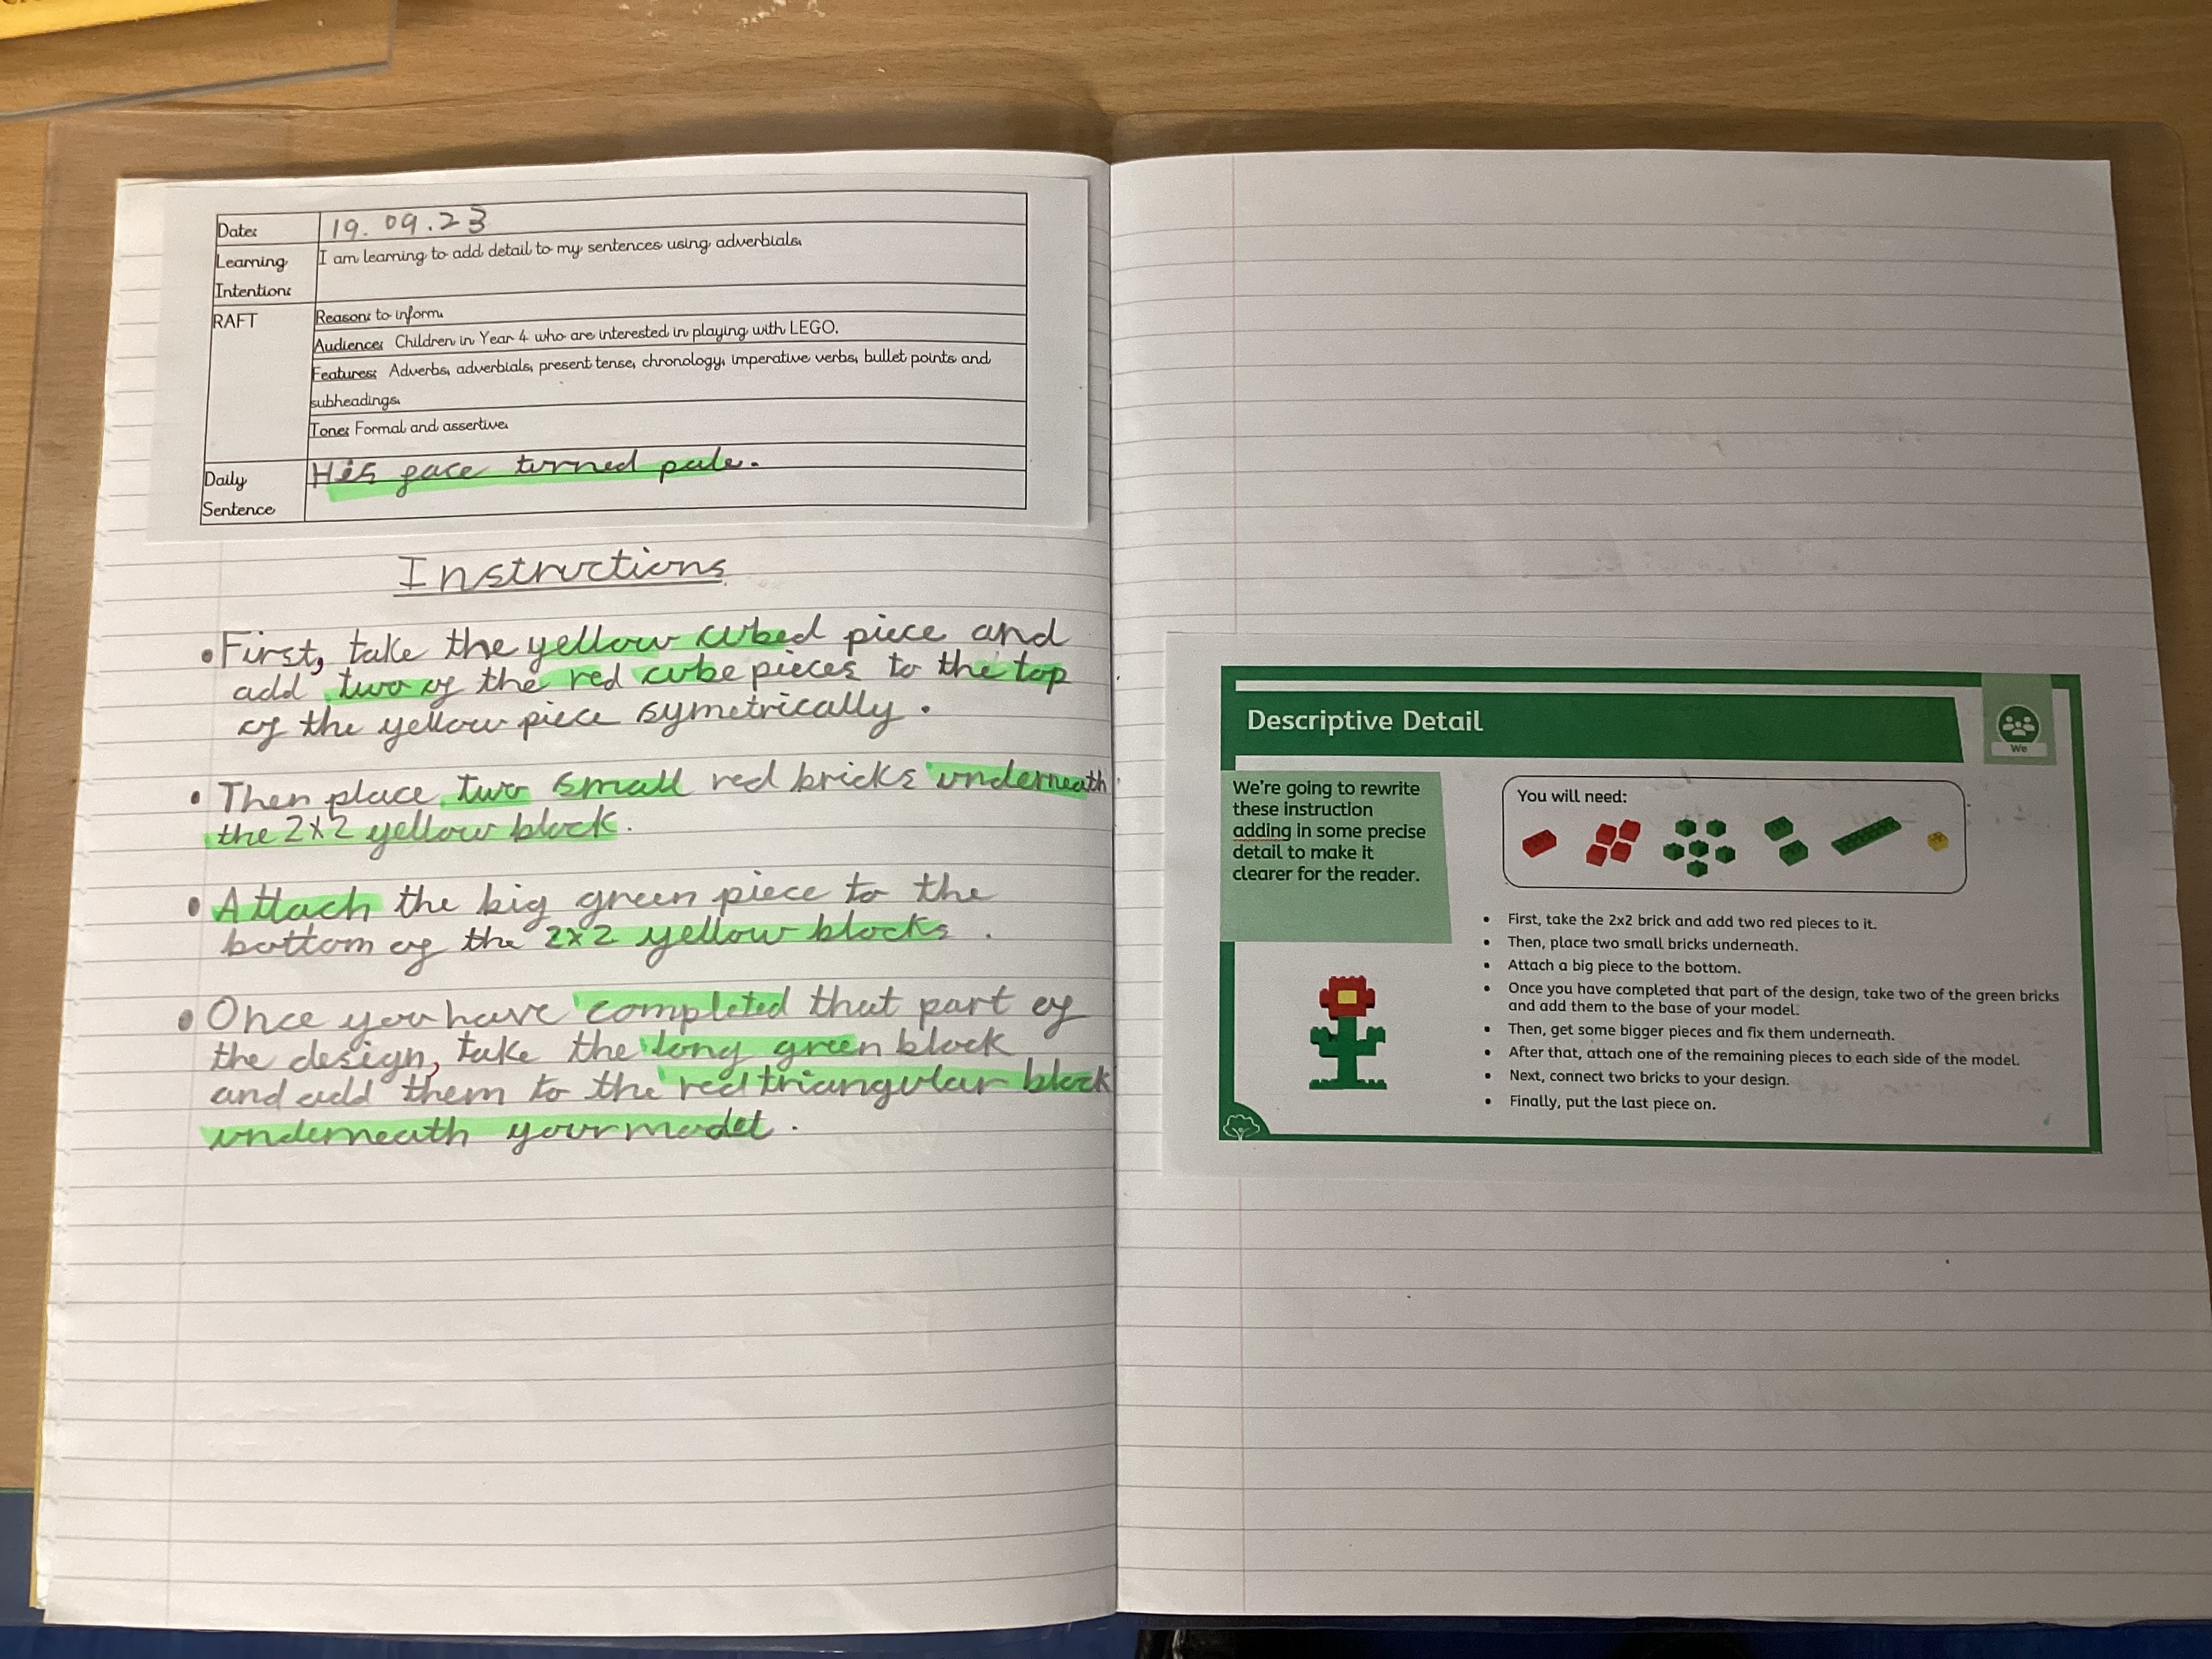 Date: 19.09.23
Learning Intention: I am learning to add detail to my sentences using adverbials.
RAFT
Reason: to inform.
Audience: Children in Year 4 who are interested in playing with LEGO.
Features: Adverbs, adverbials, present tense, chronology, imperative verbs, bullet points and
subheadings.
Tone: Formal and assertive.
Daily Sentence
His face turned pale.
Instructions
• First, take the yellow cubed piece and
add two of the red cube pieces to the top
of the yellow piece symetrically.
• Then place two small red bricks underneath
the 2x2 yellow block.
• Attach the big green piece to the
bottom of the 2x2 yellow blocks.
• Once you have completed that part of
the design, take the long green block
and add them to the red triangular block
underneath your model.
Descriptive Detail
We
We're going to rewrite
these instruction
adding in some precise
detail to make it
clearer for the reader.
You will need:
• First, take the 2x2 brick and add two red pieces to it.
• Then, place two small bricks underneath.
• Attach a big piece to the bottom.
• Once you have completed that part of the design, take two of the green bricks
and add them to the base of your model.
• Then, get some bigger pieces and fix them underneath.
• After that, attach one of the remaining pieces to each side of the model.
• Next, connect two bricks to your design.
• Finally, put the last piece on.